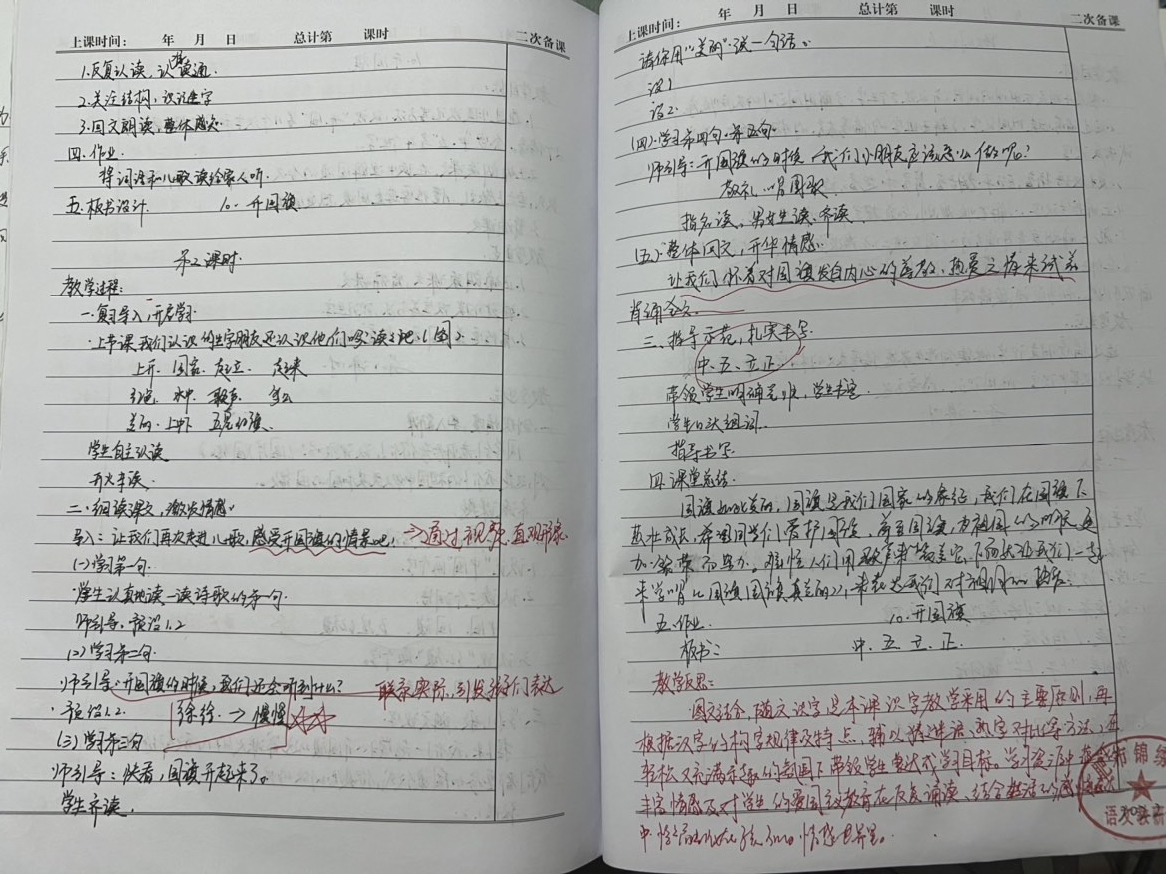 上课时间： 年 月 日 总计第 课时 二次备课
1.反复认读，认读通.
2.关注结构，识记生字
3.回文朗读，整体感知
四.作业.
将词语和儿歌读给家人听.
五.板书设计 10.升国旗
第2课时.
教学过程：
一.复习导入，开启学习
上节课我们认识的生字朋友还认识他们吗?读读吧.(图).
上升 国家 起立 起来
水中 歌声
美丽 上中下 五星红旗
学生自主认读
开火车读.
二.细读课文，激发情感.
导入：让我们再次走进儿歌，感受升国旗的情景吧. ⇒通过视频，直观形象
(一)学习第一句.
学生认真地读一读诗歌的第一句.
师引导，预设1.2
(2)学习第二句.
师引导：升国旗的时候，我们还会听到什么? 联系实际，引发孩子们表达
预设1.2. 徐徐.→慢慢
(三)学习第三句
师引导：快看，国旗升起来了。
学生齐读.
上课时间： 年 月 日 总计第 课时 二次备课
请你用"美丽"说一句话.
设1
设2.
(四).学习第四句.第五句.
师引导：升国旗的时候，我们小朋友应该怎么做呢?
敬礼，唱国歌
指名读，男女生读.齐读.
(五).整体回文，升华情感.
让我们怀着对国旗发自内心的尊敬，热爱之情来试着
背诵全文.
三.指导示范，扎实书写.
中.五.立.正.
带领学生明确笔顺，学生书空.
学生口头组词.
指导书写.
四.课堂总结.
国旗如此美丽，国旗是我们国家的象征，我们在国旗下
茁壮成长，希望同学们爱护国旗，尊重国旗，为祖国的明天更
加繁荣而努力。人们用歌声来赞美它，下面就让我们一起
来学唱《国旗国旗真美丽》，来表达我们对祖国的热爱.
五.作业. 10.升国旗
板书： 中.五.立.正.
教学反思：
图文结合，随文识字是本课识字教学采用的主要原则，再
根据汉字的构字规律及特点，辅以猜谜语、熟字对比等方法，在
轻松又充满童趣的氛围下带领学生要达成学习目标。学习资源中
丰富情感及对学生的爱国主义教育在反复诵读、结合
中 情感世界里。
市锦
语文